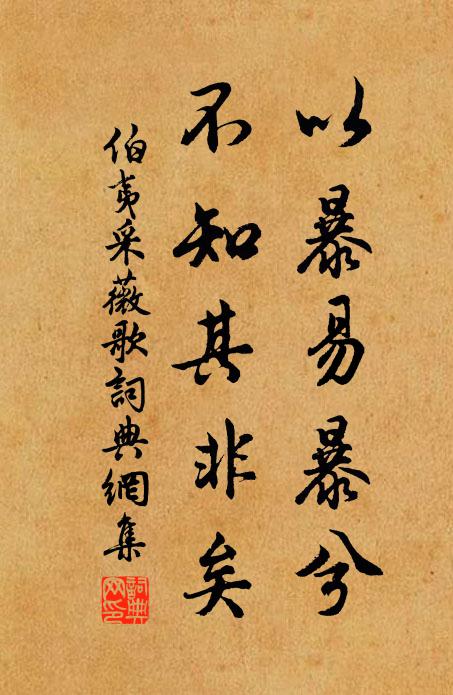 以暴易暴兮
不知其非矣
伯夷采薇歌詞典網集
詞典網印